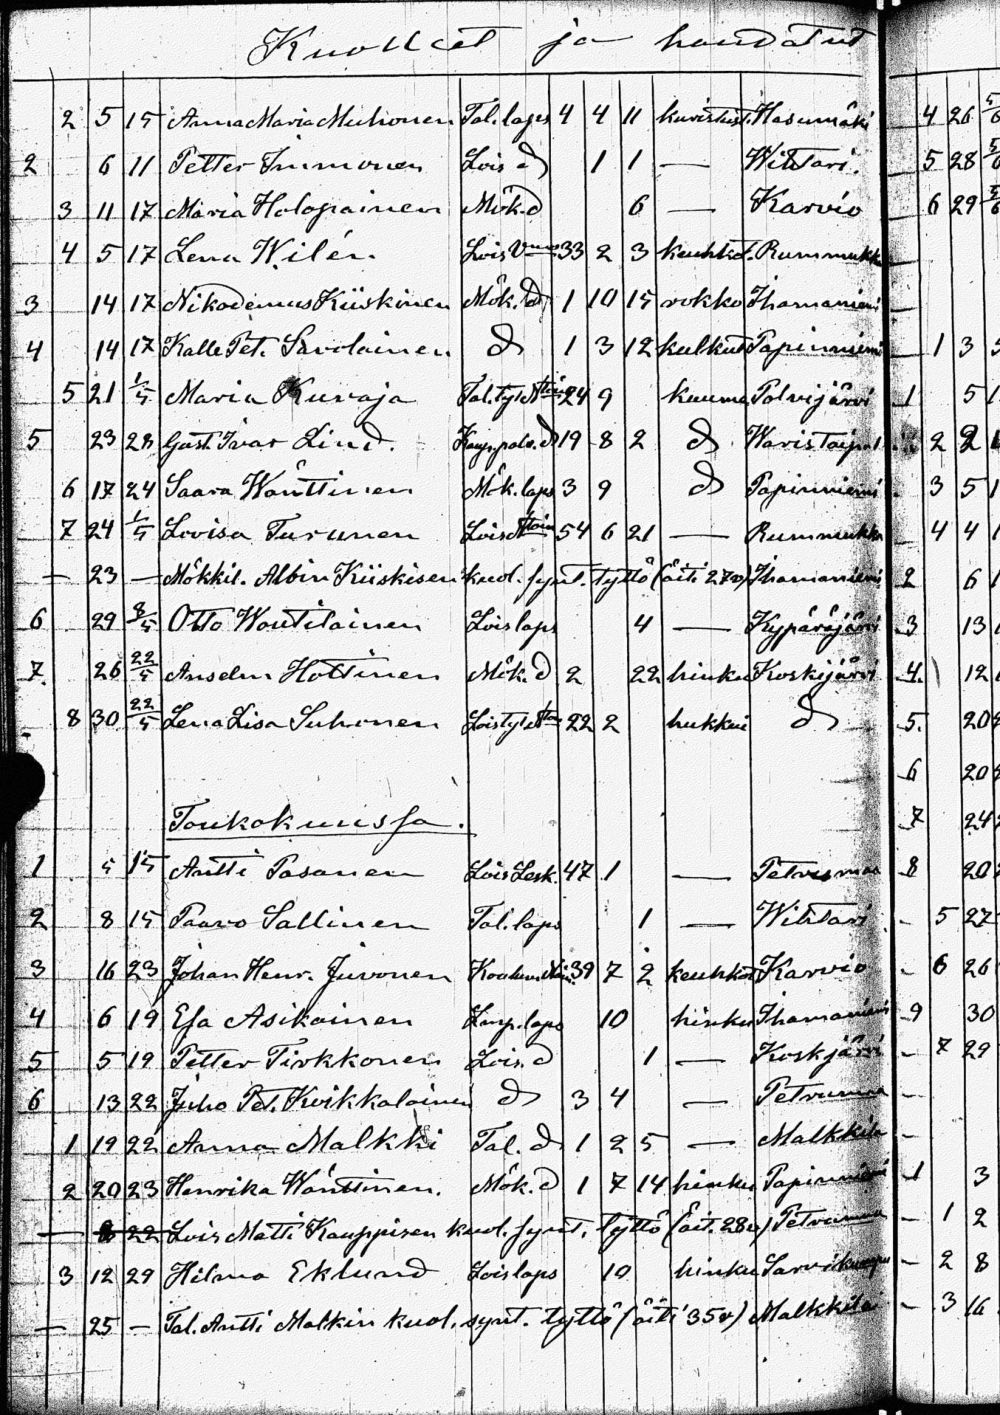 Kuolleet ja haudatut
2 5 15 Anna Maria Muhonen Tal. laps 4 4 11 kuristust. Hasumäki 4 26
2 6 11 Petter Immonen Lois d 1 1 — Wihtari. 5 28
3 11 17 Maria Holopainen Mök. d 6 — Karvio 6 29
4 5 17 Lena Wilén Lois 33 2 3 keuhkot. Rummukka
3 14 17 Nikodemus Kiiskinen Mök. d 1 10 15 rokko Ihamaniemi
4 14 17 Kalle Pet. Savolainen d 1 3 12 kulkut Papinniemi 1 3
5 21 1/5 Maria Kuvaja Tal. tyt. 24 9 kuume Polvijärvi 1 5 1
5 23 28 Gust. Ivar Lind. Kaup.palv. d 19 8 2 d Waristaipal 2 2
6 17 24 Saara Wänttinen Mök. laps 3 9 d Papinniemi 3 5 1
7 24 1/5 Lovisa Turunen Lois 54 6 21 — Rummukka 4 4 1
— 23 — Mökkil. Albin Kiiskisen kuol. synt. tyttö (äiti 27v) Ihamaniemi 2 6 1
6 29 8/5 Otto Woutilainen Lois laps 4 — Kypäräjärvi 3 13
7. 26 22/5 Anselm Hottinen Mök. d 2 22 hinku Koskijärvi 4. 12
8 30 22/5 Lena Lisa Suhonen Lois tyt. 22 2 hukkui d 5. 20
6 20
Toukokuussa. 7 24
1 5 15 Antti Pasanen Lois Lesk. 47 1 — Petrumaa 8 20
2 8 15 Paavo Sallinen Tal. laps 1 — Wihtari 5 27
3 16 23 Johan Henr. Juvonen 39 7 2 keuhkot Karvio 6 26
4 6 19 Esa Asikainen Kaup. laps 10 hinku Ihamaniemi 9 30
5 5 19 Petter Tirkkonen Lois. d 1 — Koskjärvi 7 29
6 13 22 Juho Pet. Kvikkalainen d 3 4 — Petrumaa
1 19 22 Anna Malkki Tal. d 1 2 5 — Malkkila
2 20 23 Henrika Wänttinen. Mök. d 1 7 14 hinku Papinniemi 1 3
— 8 22 Lois Matti Kauppisen kuol. synt. tyttö (Äit. 28v) Petrumaa 1 2
3 12 29 Hilma Eklund Lois laps 10 hinku 2 8
— 25 — Tal. Antti Malkin kuol. synt. tyttö (äiti 35v) Malkkila 3 16